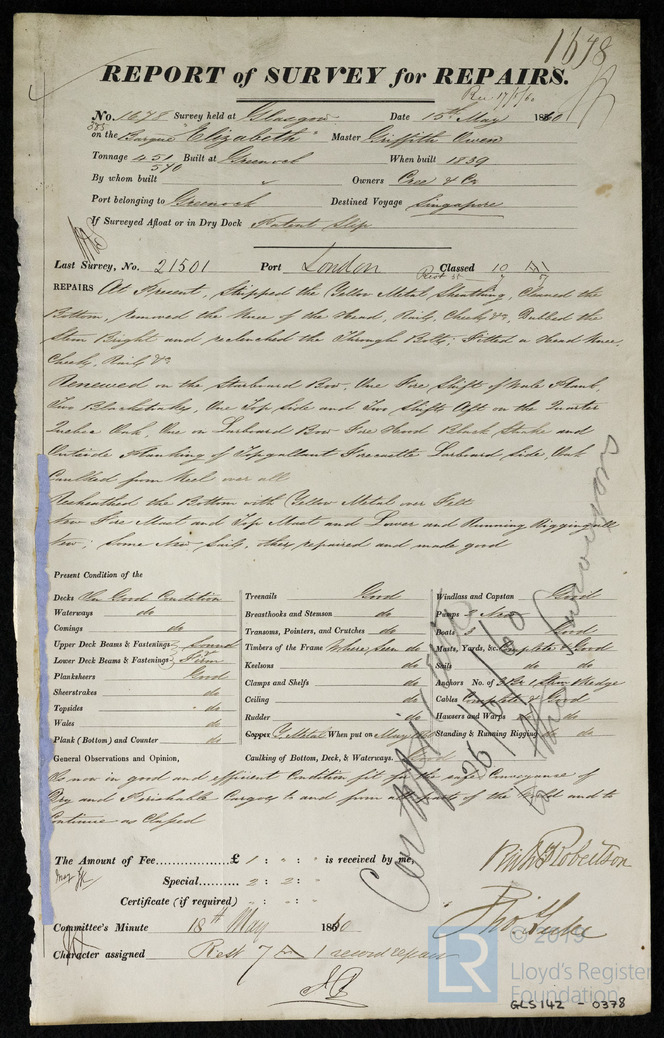 1678
REPORT of SURVEY for REPAIRS.
Rec. 17/5/60
No. 1678 Survey held at Glasgow Date 15th May 1860
585
on the Barque "Elizabeth" Master Griffith Owen
Tonnage 451/540 Built at Greenock When built 1839
By whom built Owners Cree & Co
Port belonging to Greenock Destined Voyage Singapore
If Surveyed Afloat or in Dry Dock Patent Slip
Last Survey, No. 21501 Port London Classed 10 A1
REPAIRS At Present, Stripped the Yellow Metal Sheathing, Cleaned the
Bottom, removed the Knee of the Head, Rails, Cheeks &c, Dubbed the
Stem Bright and reclenched the Through Bolts; Fitted a Head Knee,
Cheeks, Rails &c
Renewed on the Starboard Bow, One Fore Shift of Wale Plank,
Two Blackstrakes, One Top Side and Two Shifts Aft on the Quarter
Quebec Oak, One on Larboard Bow Fore Hood Black Strake and
Outside Planking of Topgallant Forecastle Larboard Side, Oak
Caulked from Keel over all
Resheathed the Bottom with Yellow Metal over Felt
New Fore Mast and Top Mast and Lower and Running Rigging all
New; Some New Sails, other repaired and made good
Present Condition of the
Decks In Good Condition
Waterways do
Comings do
Upper Deck Beams & Fastenings Sound
Lower Deck Beams & Fastenings & Firm
Planksheers Good
Sheerstrakes do
Topsides do
Wales do
Plank (Bottom) and Counter do
Treenails Good
Breasthooks and Stemson do
Transoms, Pointers, and Crutches do
Timbers of the Frame Where seen do
Keelsons do
Clamps and Shelfs do
Ceiling do
Rudder do
Copper Y. Metal When put on May
Caulking of Bottom, Deck, & Waterways. Good
Windlass and Capstan Good
Pumps 2 New
Boats Good
Masts, Yards, &c Complete & Good
Sails do do
Anchors No. of 3 Br 1 Stm Kedge
Cables Complete & Good
Hawsers and Warps do do
Standing & Running Rigging do do
General Observations and Opinion,
Is now in good and efficient Condition fit for the safe Conveyance of
Dry and Perishable Cargoes to and from all parts of the World and to
Continue as Classed
26/5/60
The Amount of Fee............... £ 1 : " : " is received by me,
Special.......... 2 : 2 : "
Certificate (if required) " : " : "
Robertson
Committee's Minute 18th May 1860
Character assigned Rest 7 A1 record repair
© 2019
LR
Lloyd's Register
Foundation
GLS142 - 0378